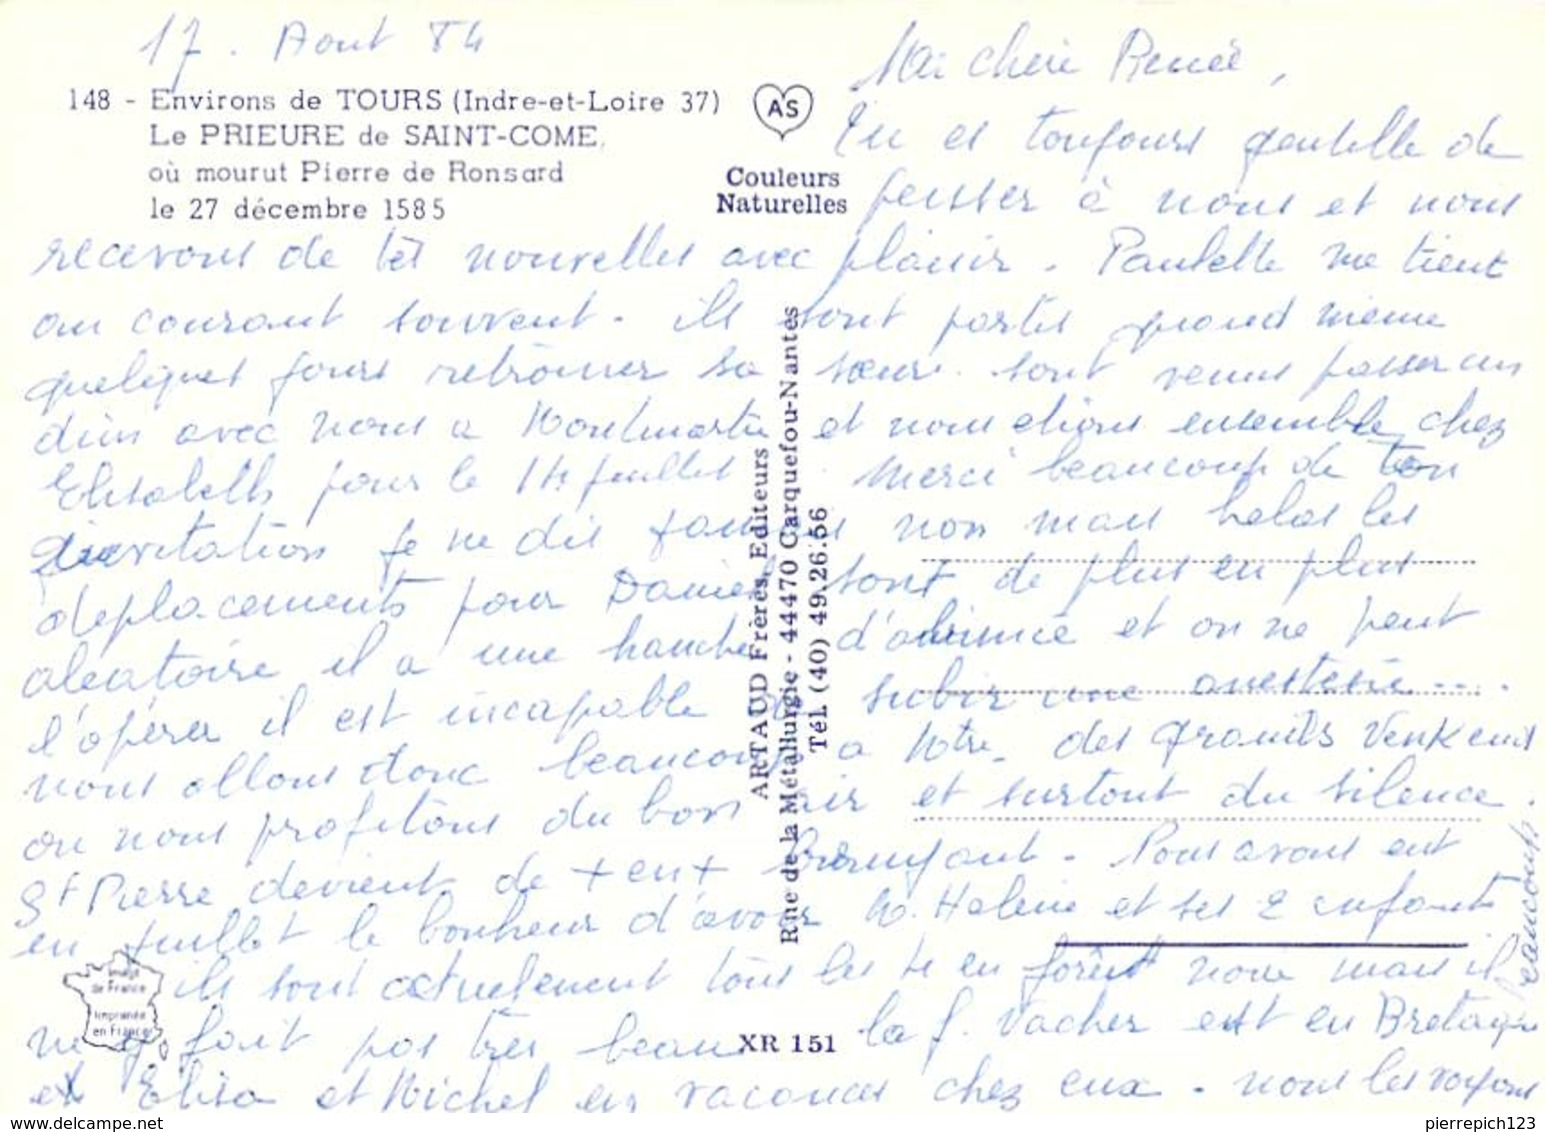 17. Aout 84
148 - Environs de TOURS (Indre-et-Loire 37)
Le PRIEURE de SAINT-COME,
où mourut Pierre de Ronsard
le 27 décembre 1585
AS
Couleurs
Naturelles
Ma chere Renée,
Tu es toujours gentille de
penser à nous et nous
recevons de tes nouvelles avec plaisir. Paulette me tient
au courant souvent. ils sont partis quand meme
quelques jours retrouver sa soeur. sont venus passer un
dim avec nous a Montmartre et nous etions ensemble chez
Elisabeth pour le 14 juillet. Merci beaucoup de ton
invitation je ne dis jamais non mais helas les
deplacements pour Daniel sont de plus en plus
aleatoire il a une hanche d'abimée et on ne peut
l'opérer il est incapable de subir une anestesie ....
nous allons donc beaucoup a des grands Venkeurs
ou nous profitons du bon air et surtout du silence.
St Pierre devient de + en + Bruyant. Nous avons eut
en juillet le bonheur d'avoir M. Helene et ses 2 enfants
ils sont actuelement tous les en forêt noire mais il
ne fait pas très beau la f. Vacher est en Bretagne
et Elisa et Michel en vacances chez eux. nous les voyons
beaucoup
ARTAUD Frères, Editeurs
Rue de la Métallurgie - 44470 Carquefou-Nantes
Tél. (40) 49.26.56
Image
de France
Imprimée
en France
XR 151
pierrepich123